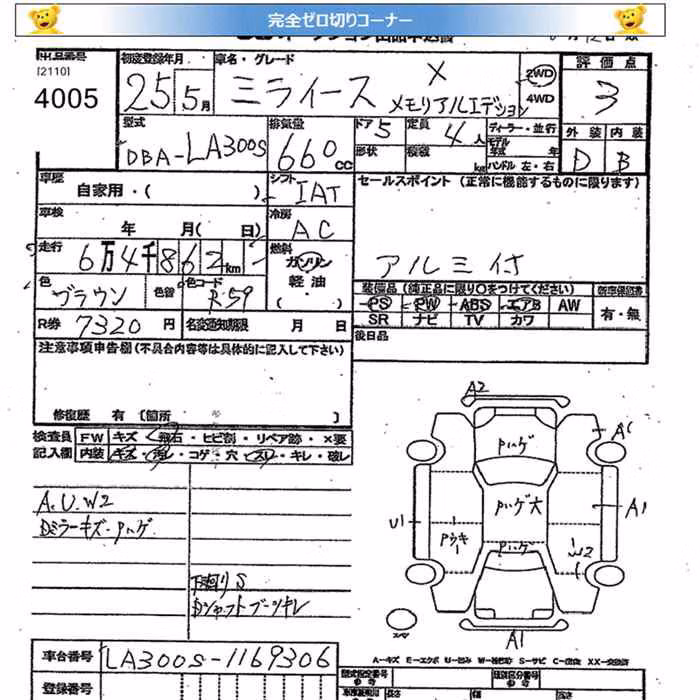 完全ゼロ切りコーナー
出品番号 初度登録年月 車名・グレード 評価点
[2110]
4005 25 5月 ミライース X メモリアルエデション 2WD 4WD 3
型式 排気量 ドア 5 定員 4人 ディーラー・並行 外装 内装
DBA-LA300S 660cc 形状 積載 kg モデル年式 年 ハンドル 左・右 D B
車歴 自家用・( ) シフト IAT セールスポイント (正常に機能するものに限ります)
車検 年 月( 日) 冷房 AC
走行 6万4千862km 燃料 ガソリン 軽油 ・ ( ) アルミ付
色 ブラウン 色替 色コード R59 装備品 (純正品に限り○をつけてください) 新車保証書
PS PW ABS エアB AW 有・無
R券 7320円 名変通知期限 月 日 SR ナビ TV カワ
注意事項申告欄(不具合内容等は具体的に記入して下さい) 後日品
修復歴 有 [箇所 ]
検査員 FW キズ・飛石・ヒビ割・リペア跡・×要
記入欄 内装 キズ・汚レ・コゲ・穴・スリ・キレ・破レ
A2
Pハゲ
A1
A.U.W2
Dミラーキズ・Pハゲ
Pハゲ大
A1
U1
Pウキ
Pハゲ
W2
下回りS
Dシャフトブーツキレ
スペア
A1
車台番号 LA300S-1169306
A-キズ E-エクボ U-凹み W-補修跡 S-サビ C-腐食 XX-交換済
登録番号
型式指定番号 類別区分番号
参考 参考
長さ